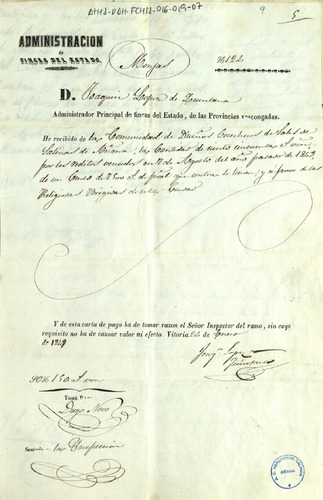 ATHA-DAH-FCHM-016-019-07
9
5
ADMINISTRACION
de
FINCAS DEL ESTADO.
Monjas
N. 124.
D. Joaquin Lopez de
Administrador Principal de fincas del Estado, de las Provincias vascongadas.
He recibido de la Comunidad de Dueños Eredieros de Sales de
Salinas de Añana; la Cantidad de ciento cincuenta
por los réditos vencidos en 7 de Agosto del año pasado de 1848,
de un Censo de 7500 de pral que contra si tienen, y a favor de las
Religiosas Brigidas de esta Ciudad
Y de esta carta de pago ha de tomar razon el Señor Inspector del ramo, sin cuyo
requisito no ha de causar valor ni efecto. Vitoria de Enero
de 1849.
Joaq.n Lopez
SON 150
Tomé Razon
Diego Novo
Sentado
la Inspeccion
ARABA